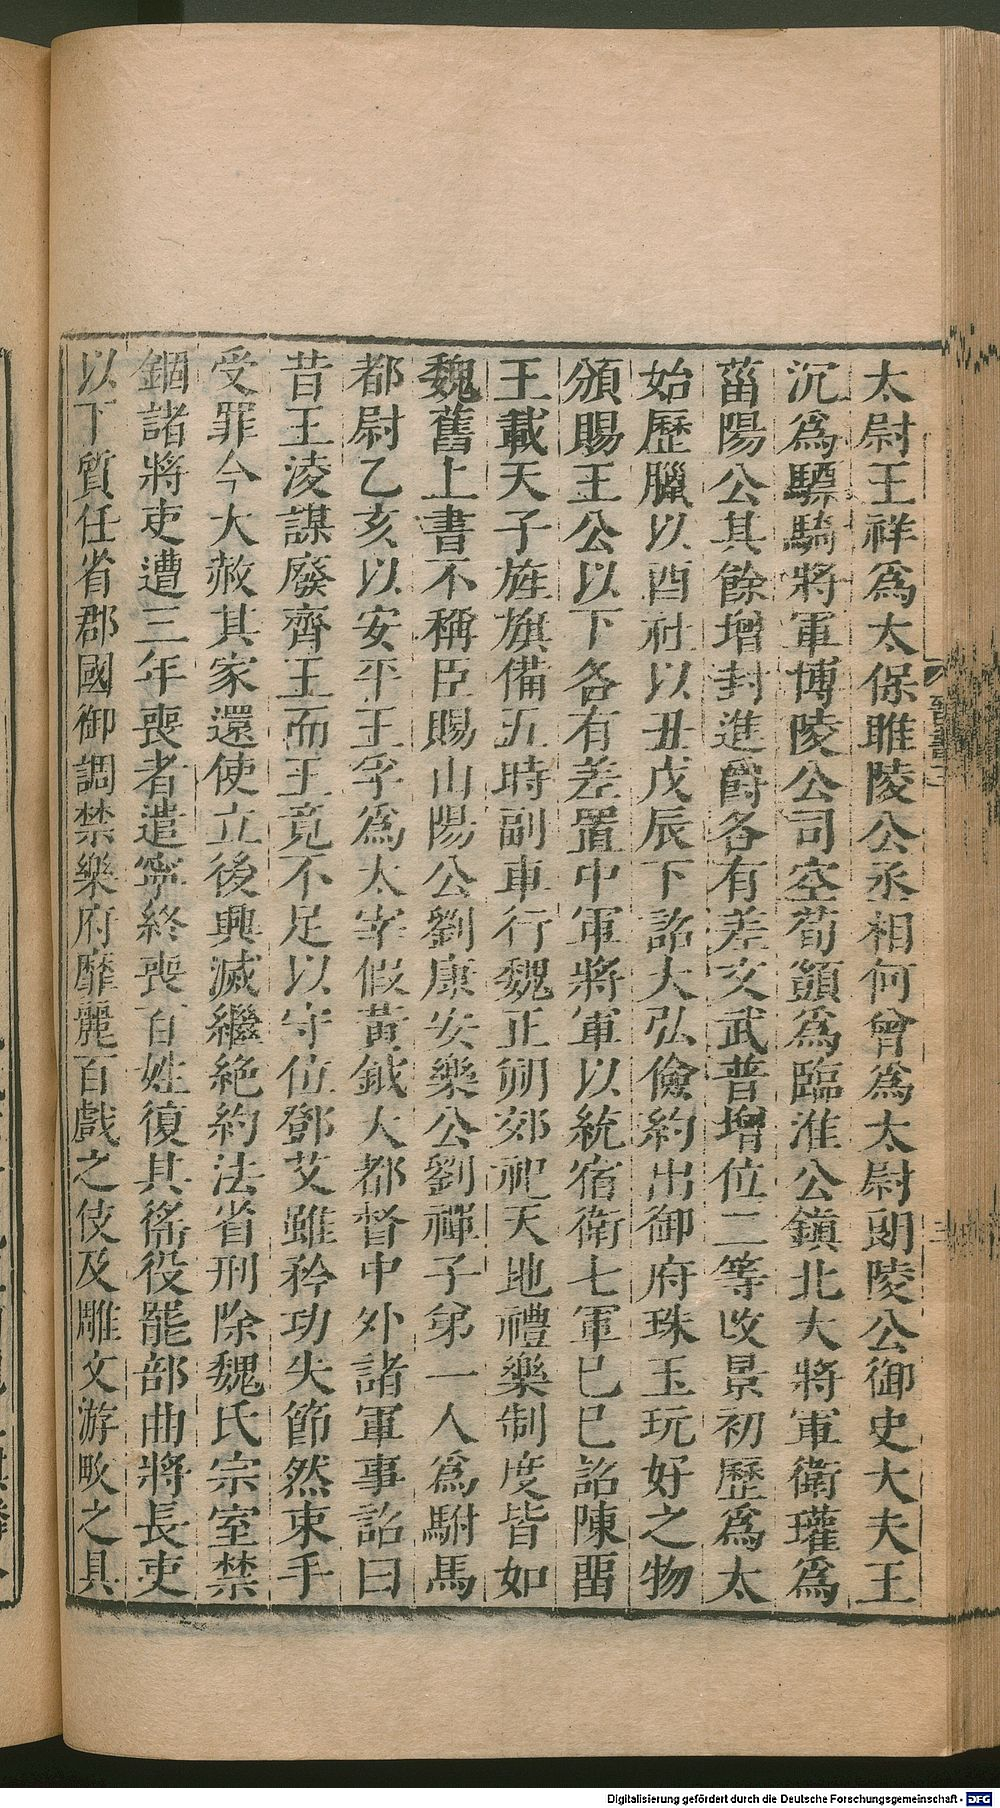 太尉王祥爲太保睢陵公丞相何曾爲太尉朗陵公御史大夫王
沉爲驃騎將軍博陵公司空荀顗爲臨淮公鎮北大將軍衛瓘爲
菑陽公其餘增封進爵各有差文武普增位二等改景初歷爲太
始歷臘以酉社以丑戊辰下詔大弘儉約出御府珠玉玩好之物
頒賜王公以下各有差置中軍將軍以統宿衛七軍巳巳詔陳畱
王載天子旌旗備五時副車行魏正朔郊祀天地禮樂制度皆如
魏舊上書不稱臣賜山陽公劉康安樂公劉禪子弟一人爲駙馬
都尉乙亥以安平王孚爲太宰假黃鉞大都督中外諸軍事詔曰
昔王淩謀廢齊王而王竟不足以守位鄧艾雖矜功失節然束手
受罪今大赦其家還使立後興滅繼絕約法省刑除魏氏宗室禁
錮諸將吏遭三年喪者遣寧終喪百姓復其徭役罷部曲將長吏
以下質任省郡國御調禁樂府靡麗百戲之伎及雕文游畋之具
Digitalisierung gefördert durch die Deutsche Forschungsgemeinschaft - DFG